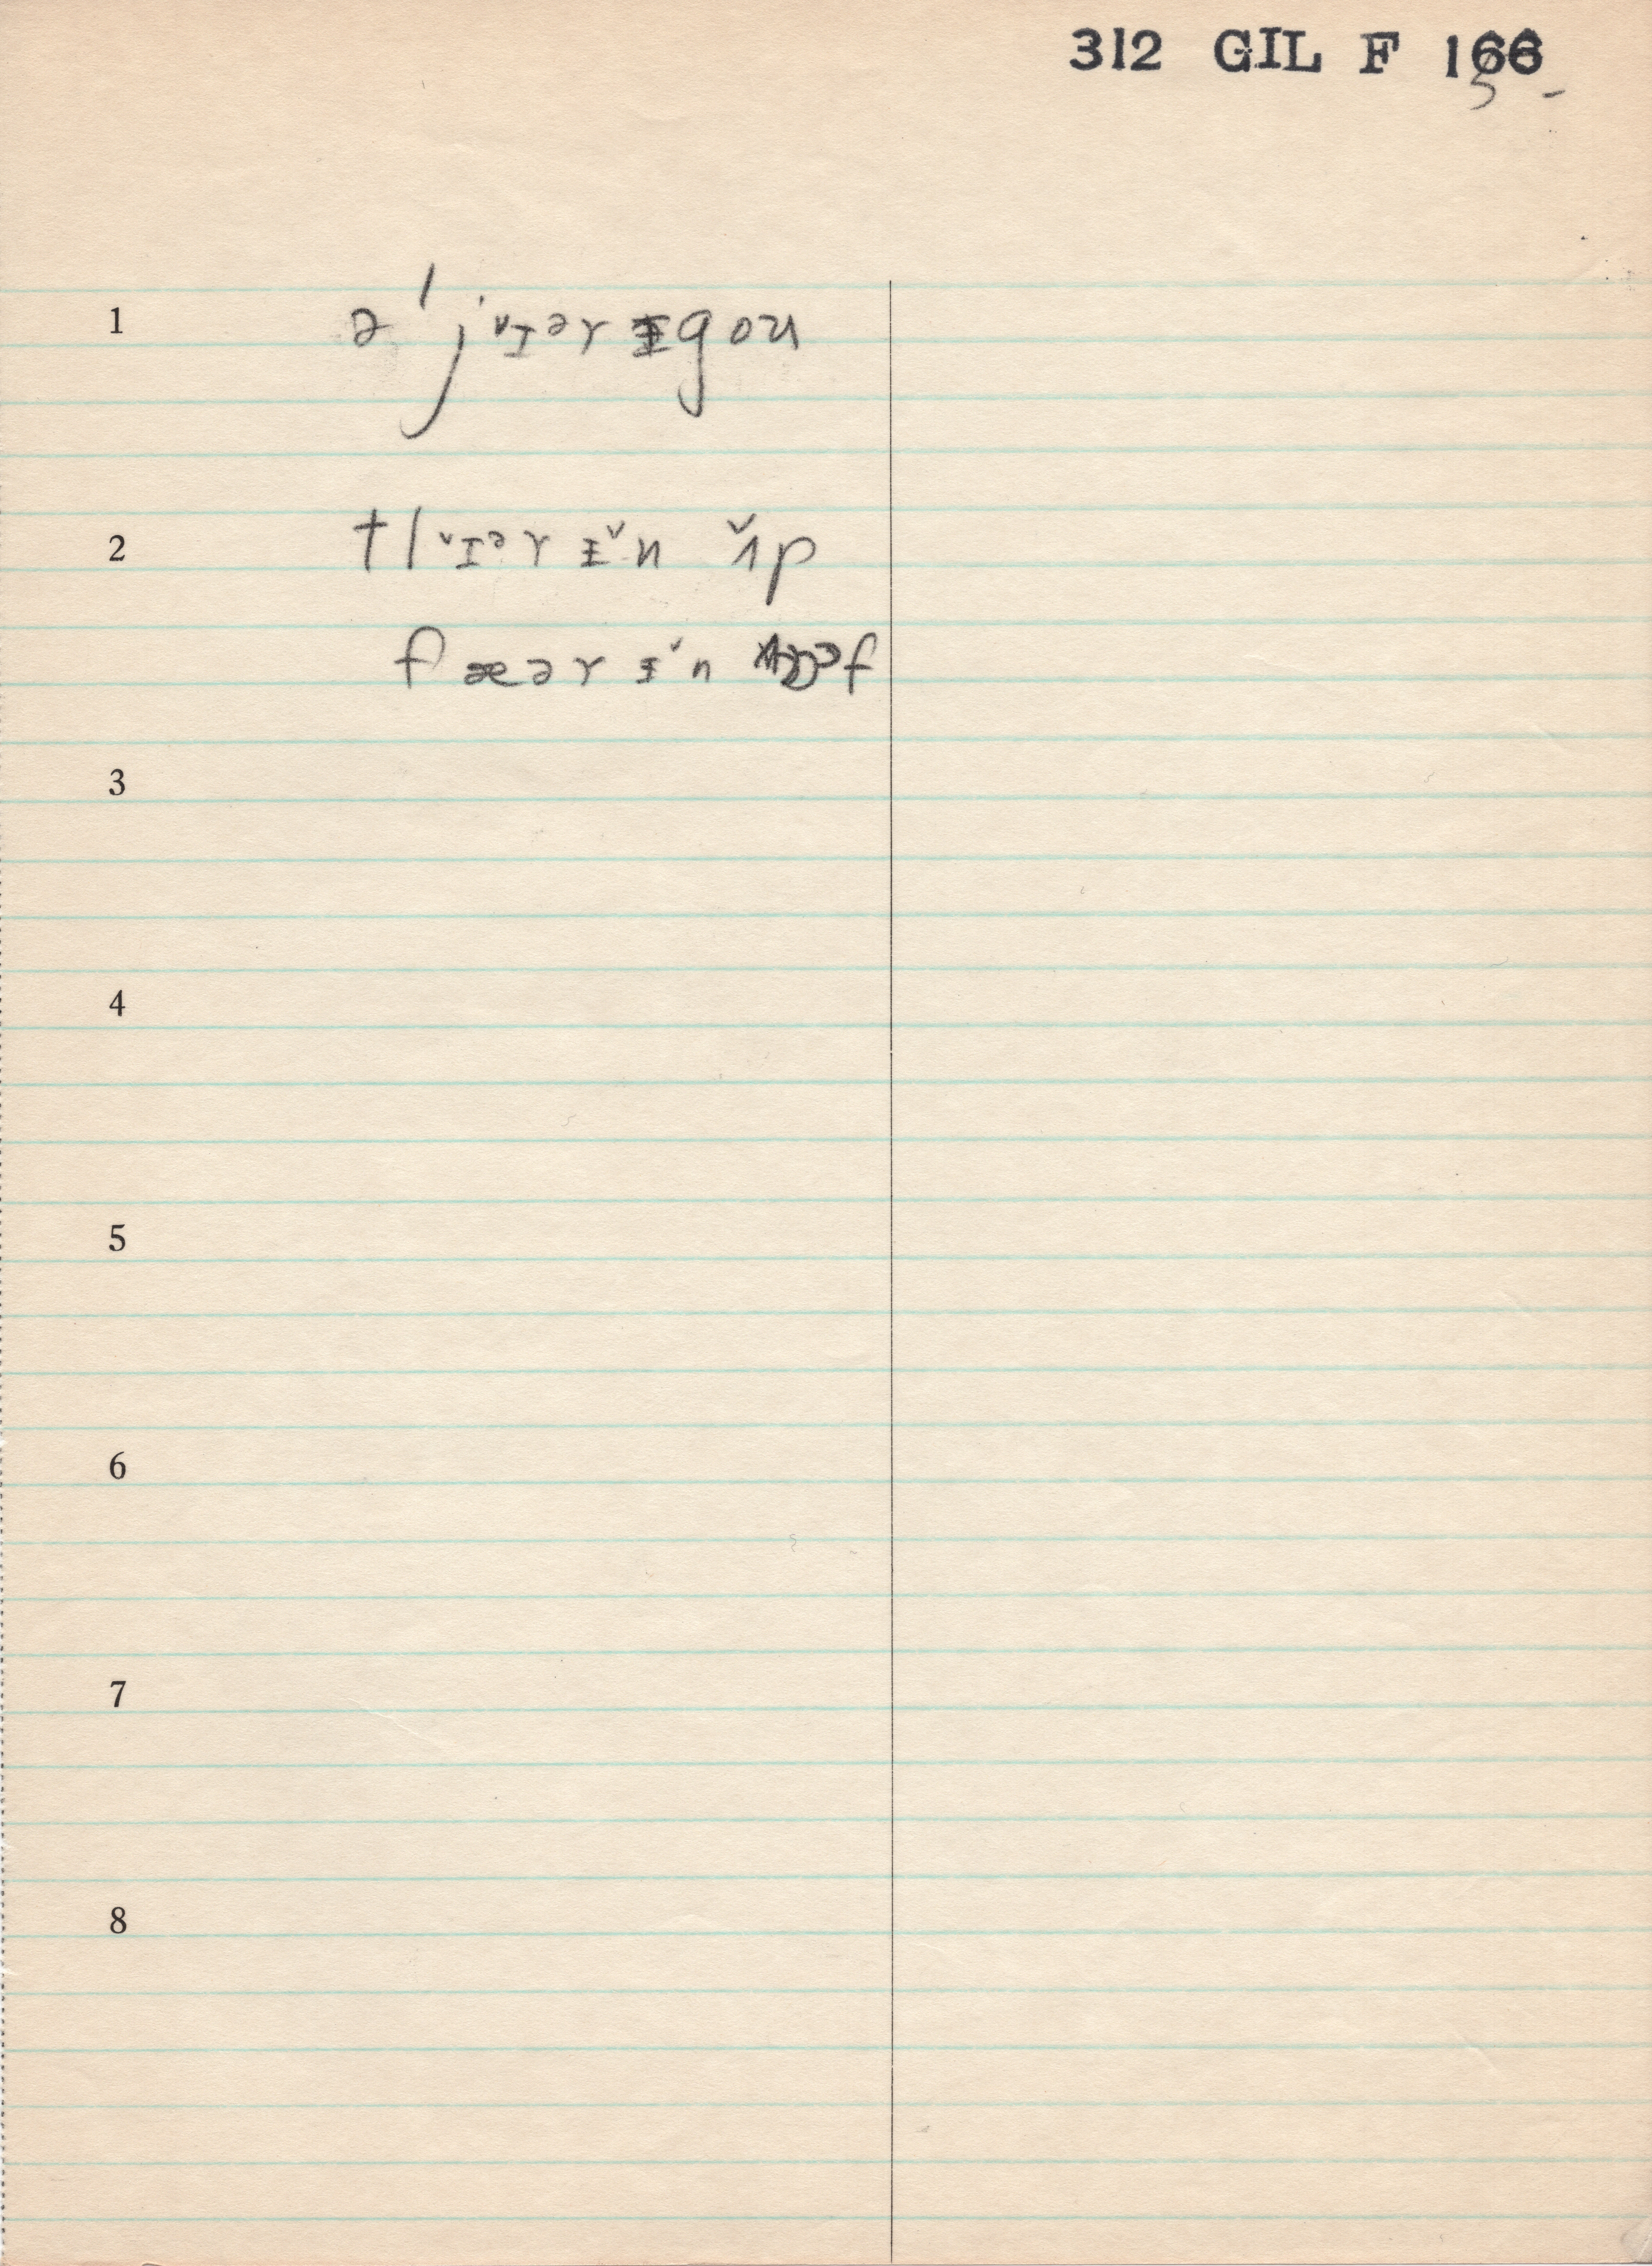 312 GIL F 166
5 -
1 ə ˈjɪ˅ər ɨgou
2 tlɪ˅ər ɨ˅n ʌ˅p
fæər ɨ˅n ɔf
3
4
5
6
7
8